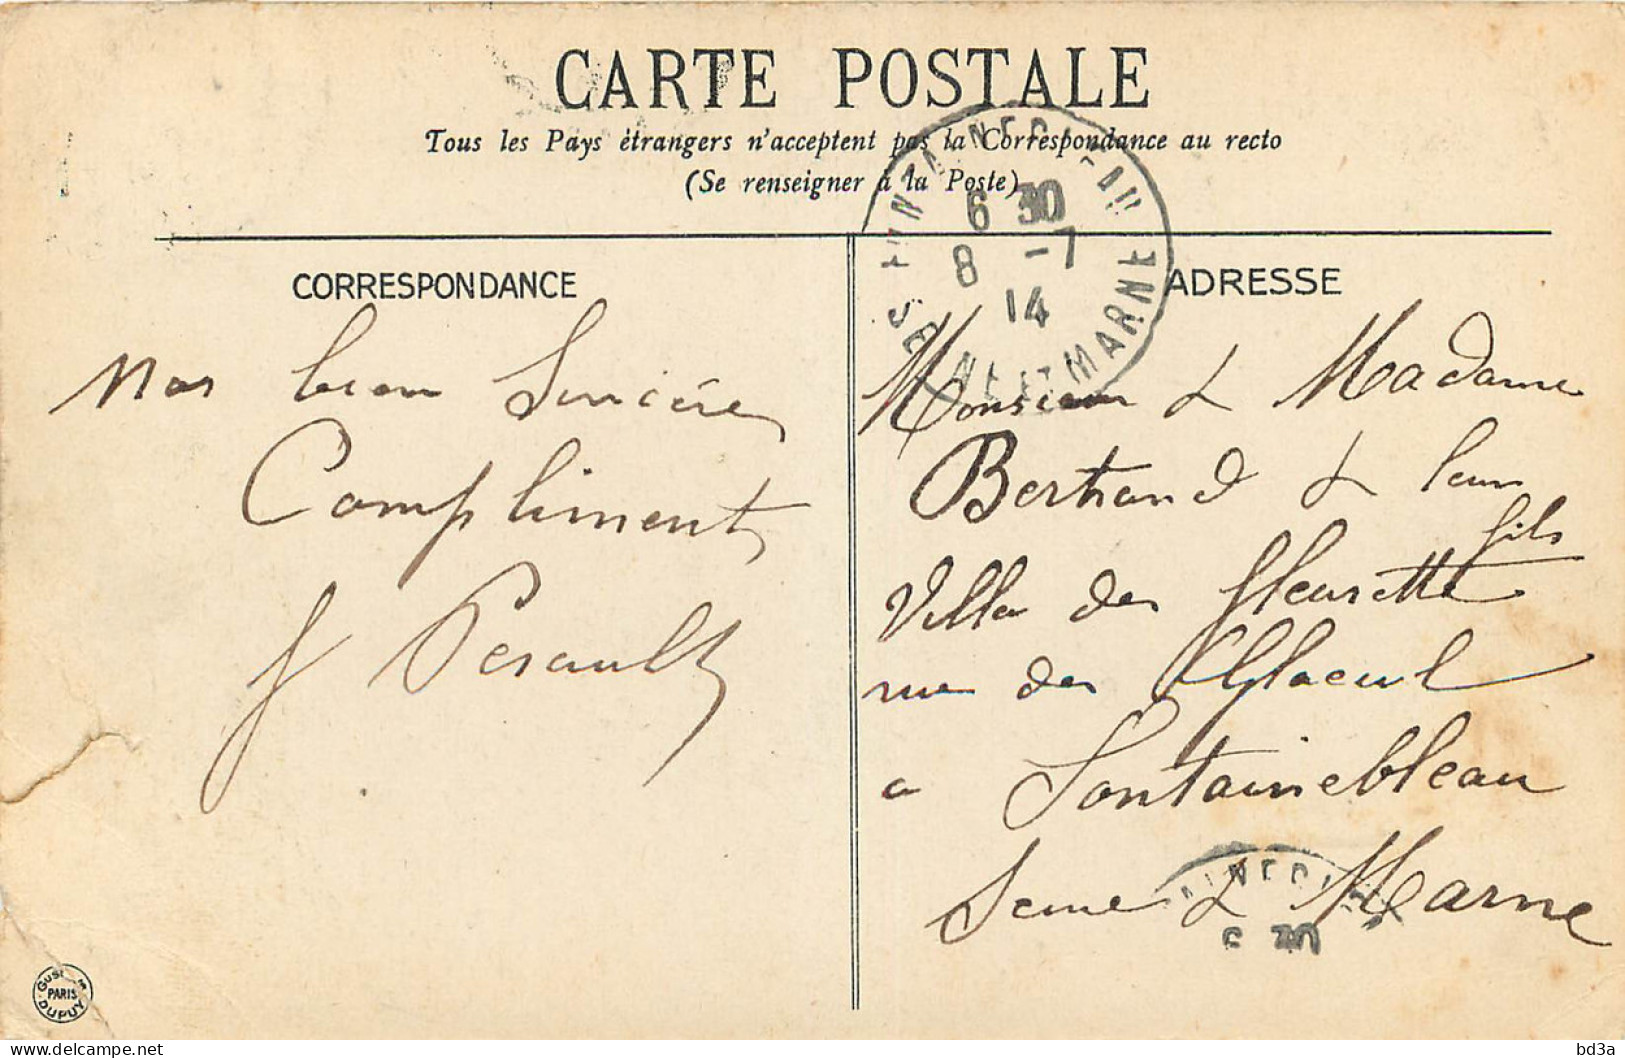 CARTE POSTALE
Tous les Pays étrangers n'acceptent pas la Correspondance au recto
(Se renseigner à la Poste)
CORRESPONDANCE
Nos bien Sincère
Compliments
J Perault
ADRESSE
Monsieur & Madame
Bertrand & leur
fils
Villa des fleurette
rue des
a Fontainebleau
Seine & Marne
FONTAINEBLEAU
6 30
8 -7
14
SEINE ET MARNE
PARIS
DUPUY
bd3a